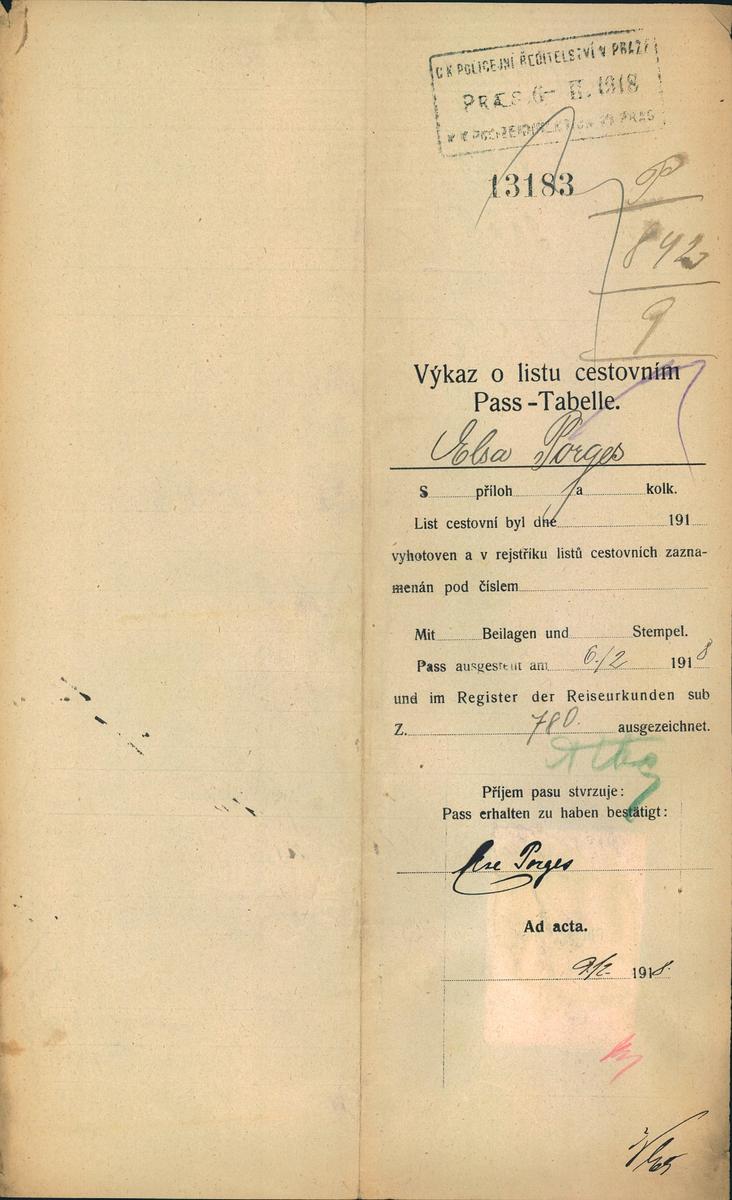 C K POLICEJNÍ ŘEDITELSTVÍ V PRAZE
PRÆS. 6- II. 1918
13183
P
842
9
Výkaz o listu cestovním
Pass-Tabelle.
Elsa Porges
S příloh a kolk.
List cestovní byl dne 191
vyhotoven a v rejstříku listů cestovních zazna-
menán pod číslem
Mit Beilagen und Stempel.
Pass ausgestellt am 6./2 1918
und im Register der Reiseurkunden sub
Z. 780. ausgezeichnet.
Příjem pasu stvrzuje:
Pass erhalten zu haben bestätigt:
Else Porges
Ad acta.
1918.